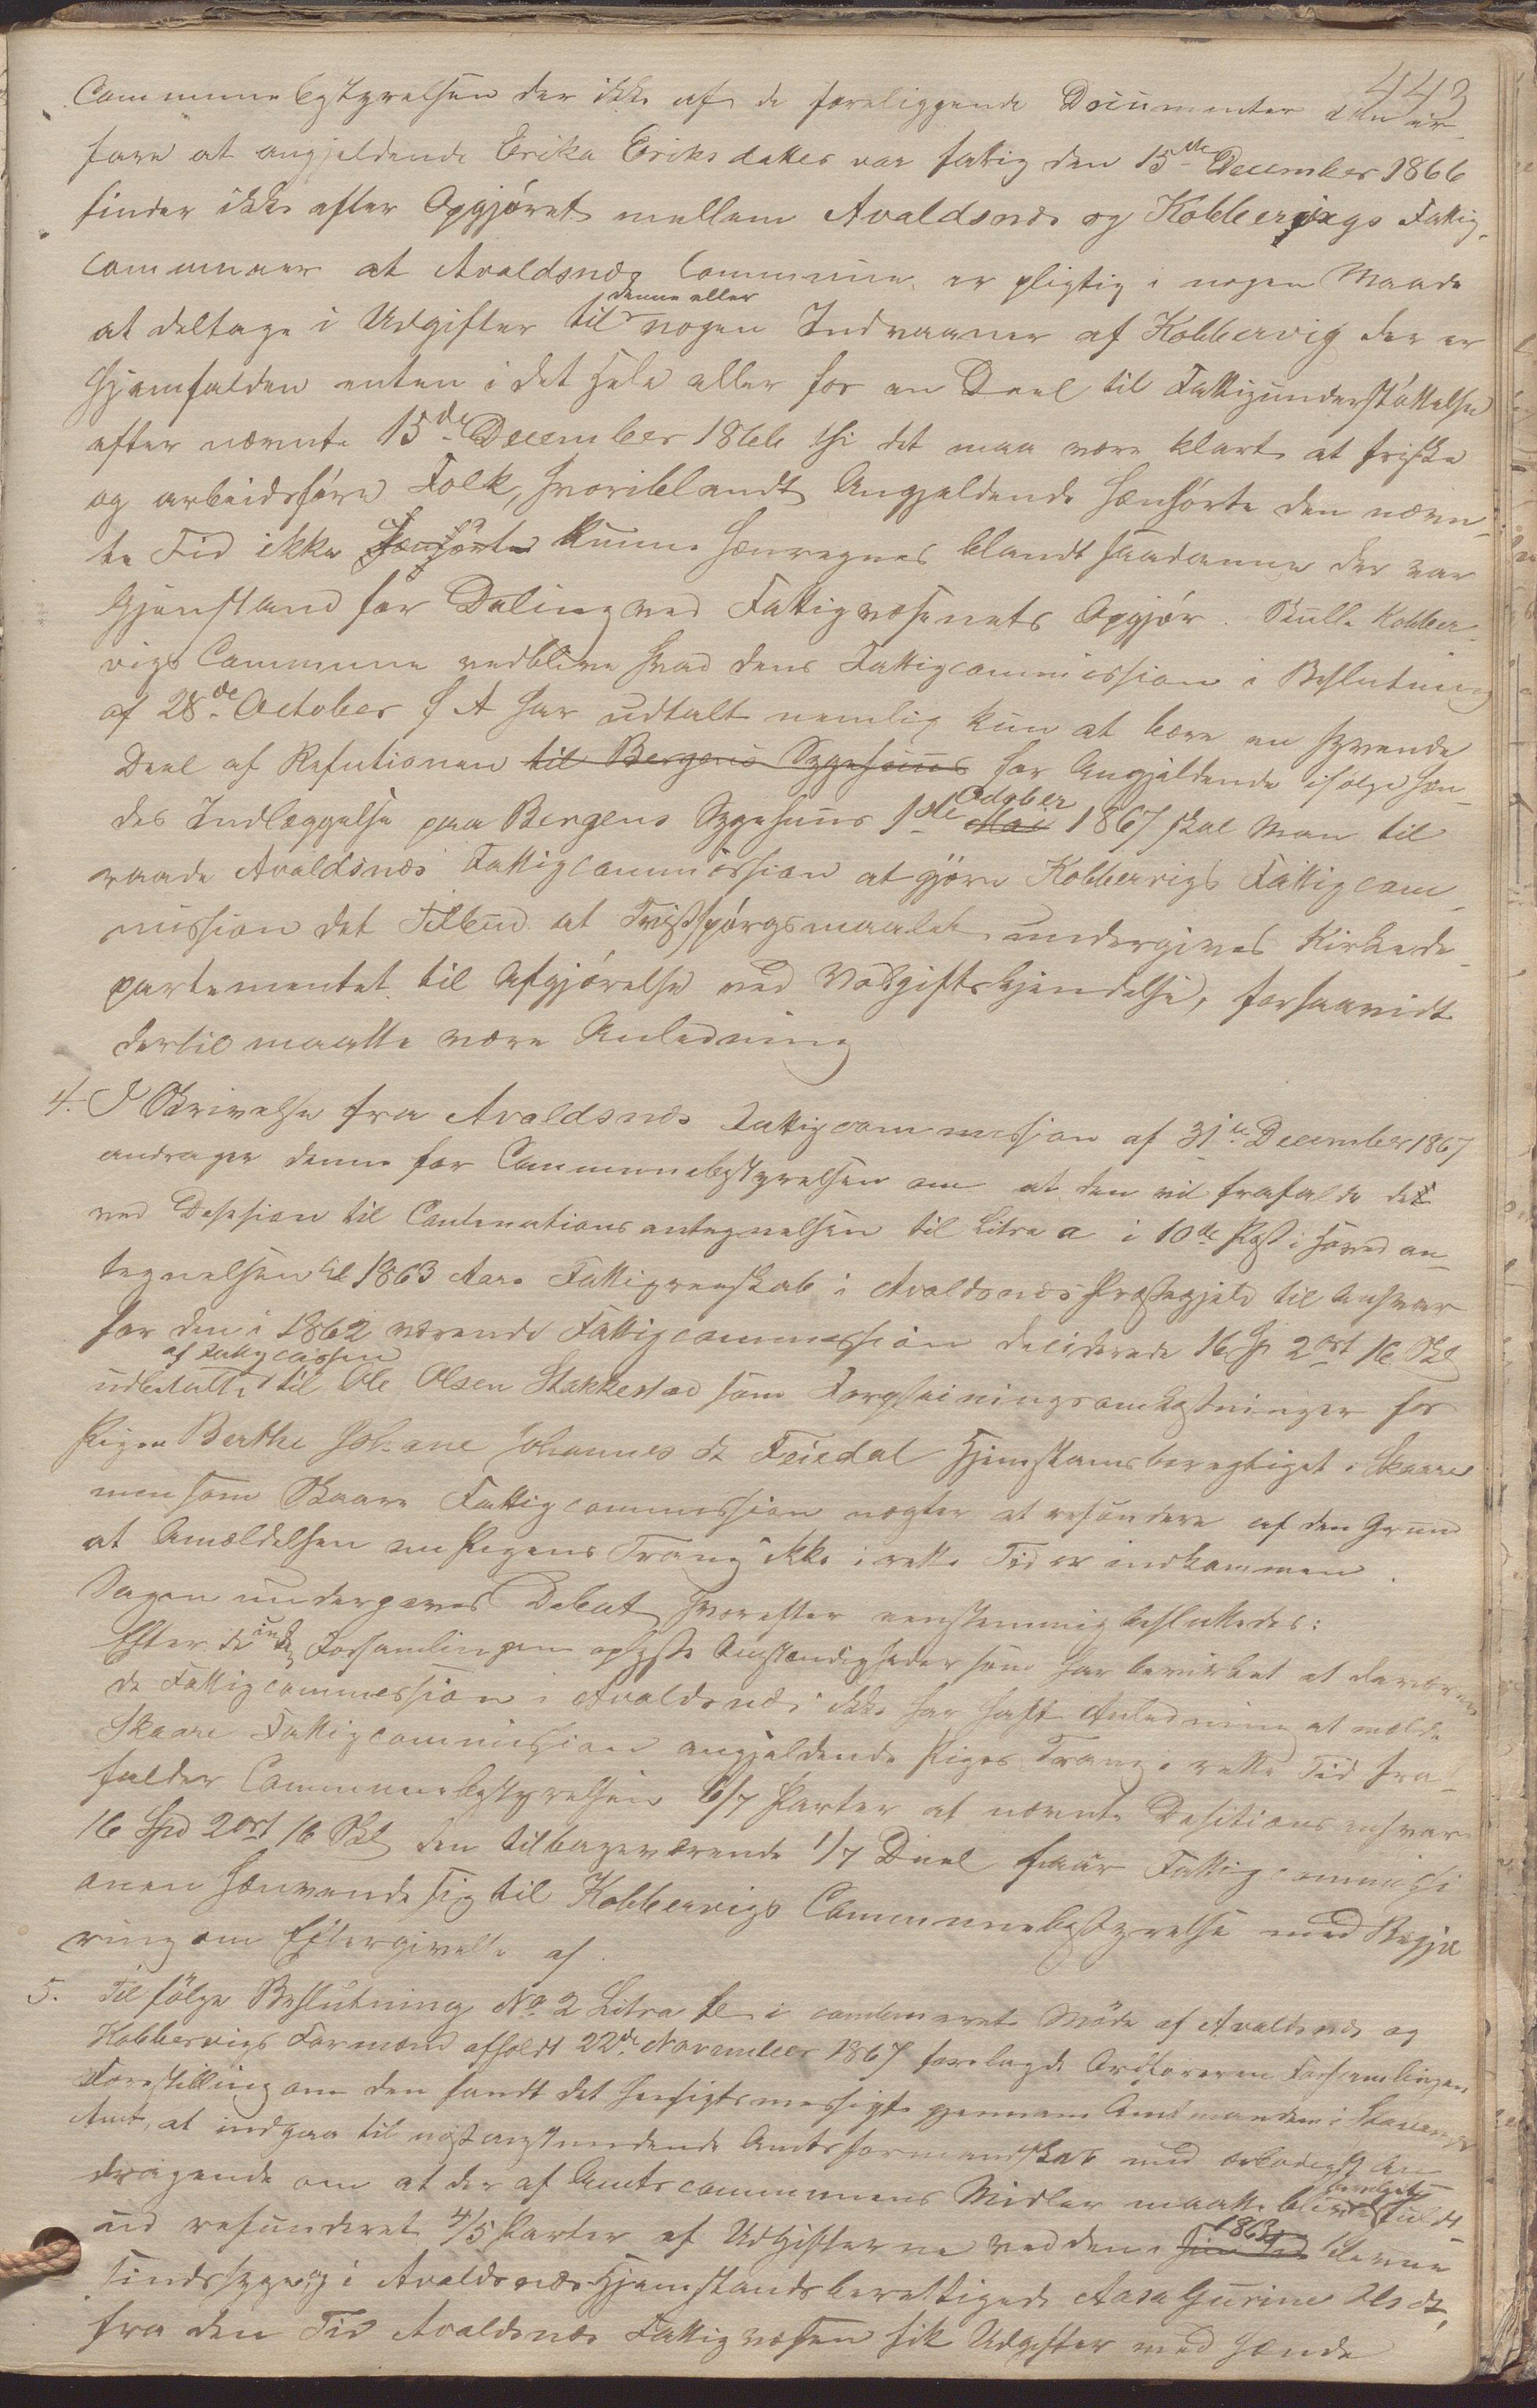 443
Communebestyrelsen der ikke af de foreliggende Documenter kan er-
fare at angjeldende Erika Eriksdatter var fattig den 15de December 1866
finder ikke efter Opgjøret mellem Avaldsnæs og Kobbervigs Fattig-
communer at Avaldsnæs Commune er pligtig i nogen Maade
at deltage i Udgifter til denne eller nogen Indvaaner af Kobbervig der er
hjemfalden enten i det Hele eller for en Deel til Fattigunderstøttelse
efter nævnte 15de December 1866 thi det maa være klart at friske
og arbeidsføre Folk, hvoriblandt Angjeldende henhørte den nævn-
te Tid ikke henhørte kunne henregnes blandt saadanne der var
Gjenstand for Deling ved Fattigvæsenets Opgjør. Skulle Kobber-
vigs Commune vedblive hvad dens Fattigcommission i Beslutning
af 28de October f A har udtalt nemlig kun at bære en syvende
Deel af Refutionen til Bergens Sygehuus for Angjeldende ifølge hen-
des Indlæggelse paa Bergens Sygehuus 1ste Mai October 1867 skal Man til
raade Avaldsnæs Fattigcommission at gjøre Kobbervigs Fattigcom-
mission det Tilbud at Tvistspørgsmaalet undergives Kirkede-
partementet til Afgjørelse ved Voldgiftskjendelse, forsaavidt
dertil maatte være Anledning
4. I Skrivelse fra Avaldsnæs Fattigcommission af 31te December 1867
andrager denne for Communebestyrelsen om at den vil frafalde det
ved Desision til Continuationsantegnelsen til Litra a i 10de Post i Hoved an-
tegnelsen til 1863 Aars Fattigregnskab i Avaldsnæs Præstegjeld til Ansvar
for den i 1862 værende Fattigcommission desiderede 16 Sp 2 ort 16 Skl
udbetalte af Fattigcassen til Ole Olsen Stakkestad som Forpleiningsomkostninger for
Pigen Berthe Johane Johannes dt Feiedal Hjemstamsberegtiget i Skaare
men som Skaare Fattigcommission negter at refundere af den Grund
at Anmeldelsen om Pigens Trang ikke i rette Tid er indkommen.
Sagen undergaves Debat hvorefter eenstemmig besluttedes:
Efter de i Forsamlingen oplyste Omstændigheder som har bevirket at daværen
de Fattigcommission i Avaldsnæs ikke har havt Anledning at melde
Skaare Fattigcommission angjeldende Piges Trang i rette Tid fra-
falder Communebestyrelsen 6/7 Parter af nævnte Desitions ansvar
16 Spd 2 ort 16 Skl den tilbageværende 1/7 Deel faar Fattigcommissi
onen henvende sig til Kobbervigs Communebestyrelse med Begjæ
ring om Eftergivelse af.
5. Til følge Beslutning No 2 Litra i combineret Møde af Avaldsnæs og
Kobbervigs Formænd afholdt 22de November 1867 forelagde Ordføreren Forsamlingen
Forestilling om den fandt det hensigtsmæssigt gjennem Amtmanden i Stavanger
Amt, at indgaa til næstanstundende Amtsformandskab med ærbødigst An
dragende om at der af Amtscommunens Midler maatte blive bevilget
 refunderet 4/5 Parter af Udgifterne ved den 1863 
Sindssyge, i Avaldsnæs Hjemstandsberettigede Aasa Gurine Olsdt,
fra den Tid Avaldsnæs Fattigvæsen fik Udgifter med hende